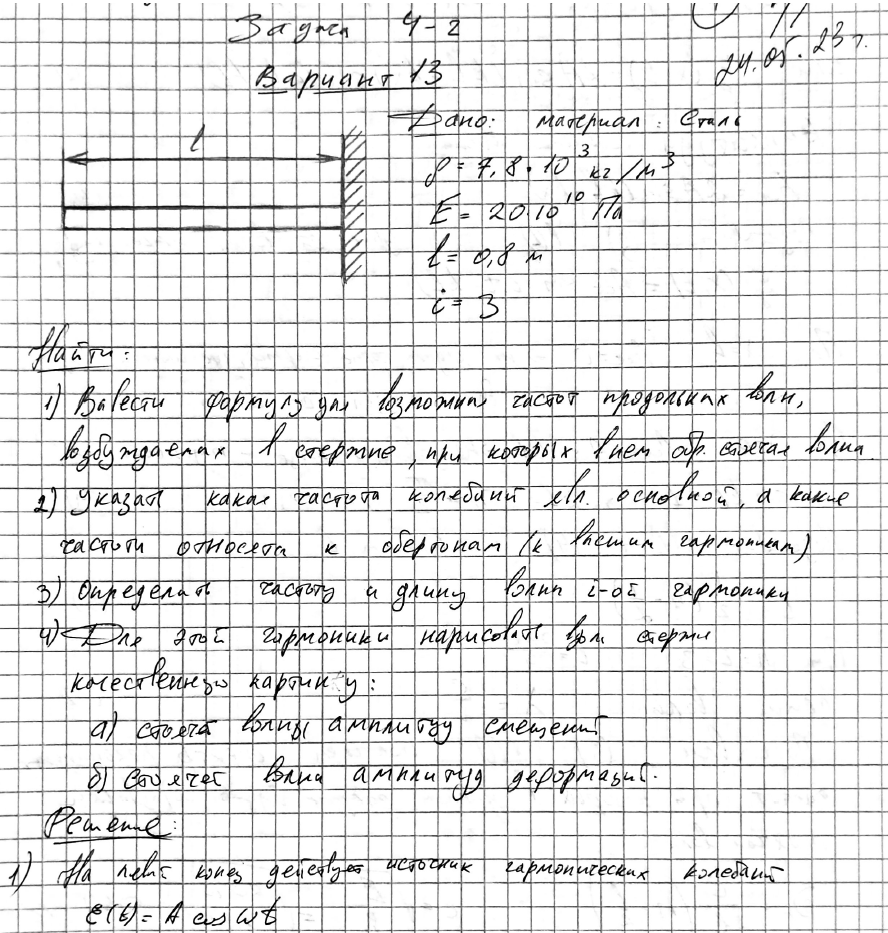 Задача 4-2
24.05.23г.
Вариант 13
l
Дано: материал: Сталь
ρ = 7,8·10³ кг/м³
E = 20·10¹⁰ Па
l = 0,8 м
i = 3
Найти:
1) Вывести формулу для возможных частот продольных волн,
возбуждаемых в стержне, при которых в нем обр. стоячая волна.
2) Указать какая частота колебаний явл. основной, а какие
частоты относятся к обертонам (к высшим гармоникам)
3) Определить частоту и длину волны i-ой гармоники
4) Для этой гармоники нарисовать вдоль стержня
качественную картину:
а) стоячей волны амплитуд смещений
б) стоячей волны амплитуд деформаций.
Решение:
1) На левый конец действует источник гармонических колебаний
ε(t) = A cos ωt